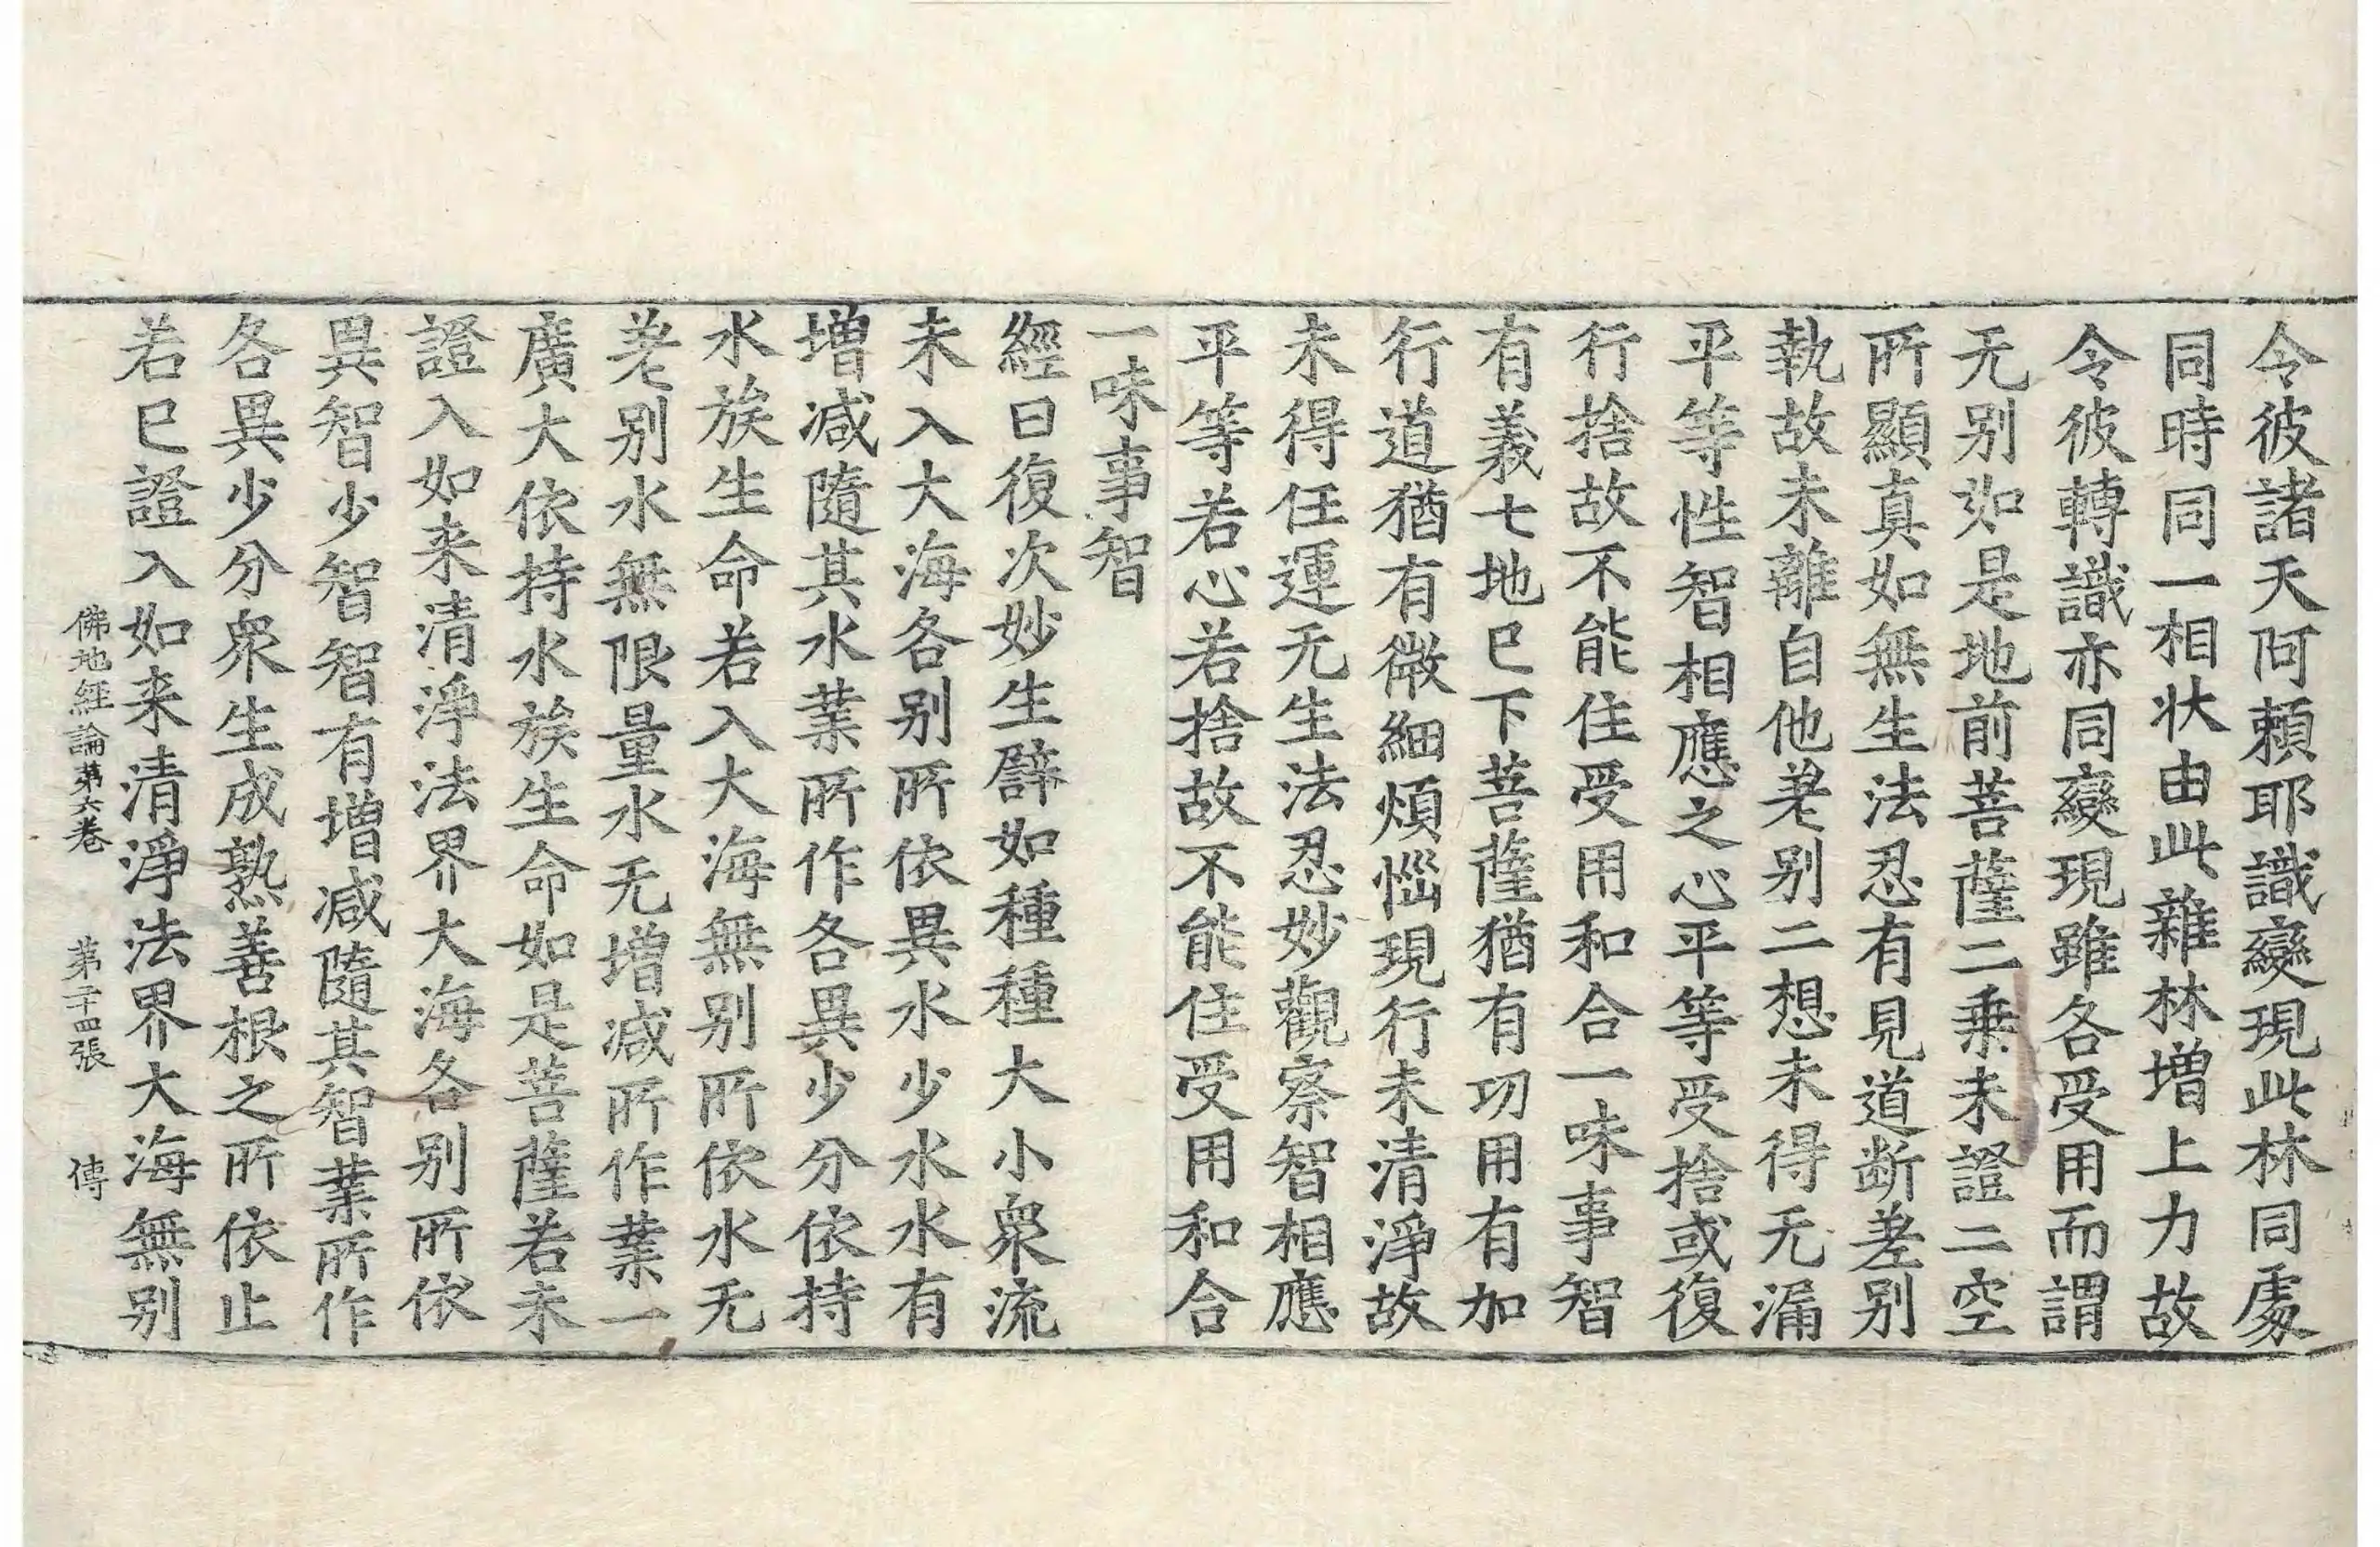 令彼諸天阿頼耶識變現此林同處
同時同一相状由此雜林增上力故
令彼轉識亦同變現雖各受用而謂
无别如是地前菩薩二乗未證二空
所顯真如無生法忍有見道断差别
執故未離自他差别二想未得无漏
平等性智相應之心平等受捨或復
行捨故不能住受用和合一味事智
有義七地已下菩薩猶有功用有加
行道猶有微細煩惱現行未清淨故
未得任運无生法忍妙觀察智相應
平等若心若捨故不能住受用和合
一味事智
經曰復次妙生譬如種種大小衆流
未入大海各别所依異水少水水有
增减隨其水業所作各異少分依持
水族生命若入大海無别所依水无
差别水無限量水无增减所作業一
廣大依持水族生命如是菩薩若未
證入如来清淨法界大海各别所依
異智少智智有增减隨其智業所作
各異少分衆生成熟善根之所依止
若已證入如来清淨法界大海無别
佛地経論第六卷 第二十四張 傳